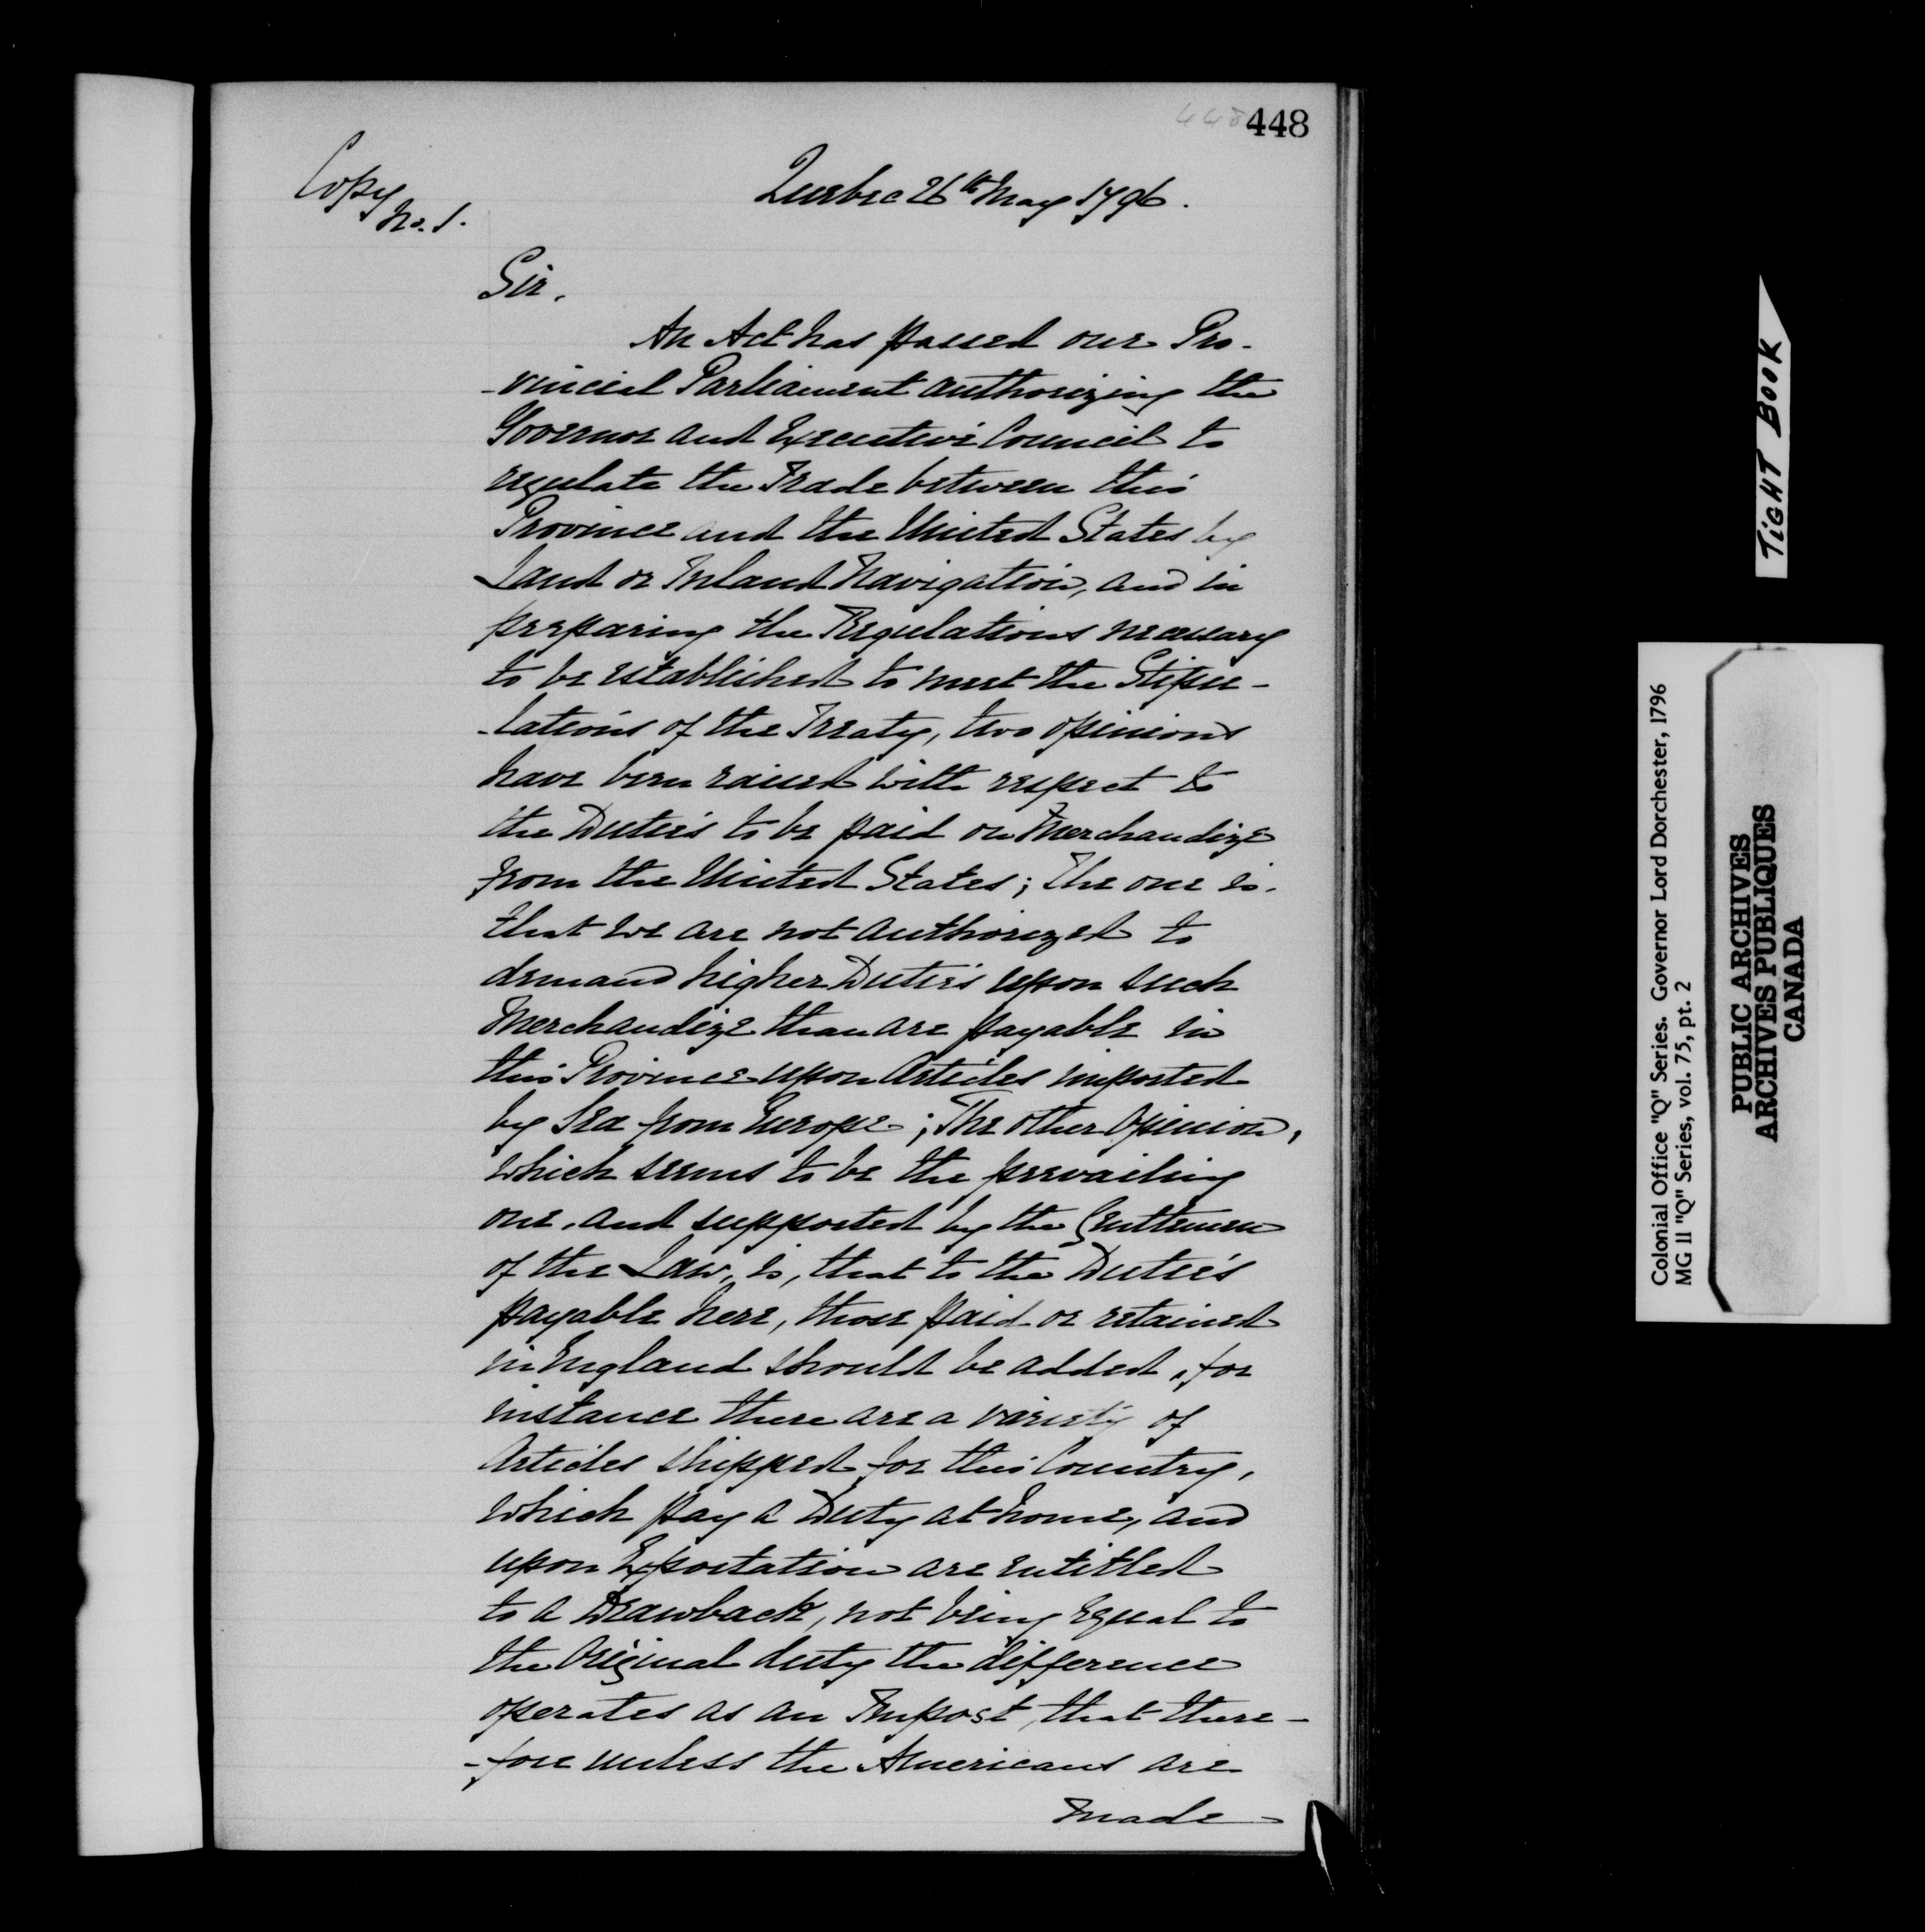 448 448
Copy
No. 1.
Quebec 26th May 1796.
Sir,
An Act has passed our Pro-
-vincial Parliament authorizing the
Governor and Executive Council to
regulate the Trade between this
Province and the United States by
Land or Inland Navigation, and in
preparing the Regulations necessary
to be established to meet the Stipu-
-lations of the Treaty, two opinions
have been raised with respect to
the Duties to be paid on Merchandize
from the United States; The one is.
that we are not authorized to
demand higher Duties upon such
Merchandize than are payable in
this Province upon Articles imported
by Sea from Europe; The other Opinion,
which seems to be the prevailing
one, and supported by the Gentlemen
of the Law, is, that to the Duties
payable here, those paid or retained
in England should be added, for
instance there are a variety of
Articles shipped for this Country,
which pay a Duty at home, and
upon Exportation are entitled
to a Drawback, not being equal to
the Original duty the difference
operates as an Impost, that there-
-fore unless the Americans are
made
TIGHT BOOK
Colonial Office "Q" Series. Governor Lord Dorchester, 1796
MG 11 "Q" Series, vol. 75, pt. 2
PUBLIC ARCHIVES
ARCHIVES PUBLIQUES
CANADA